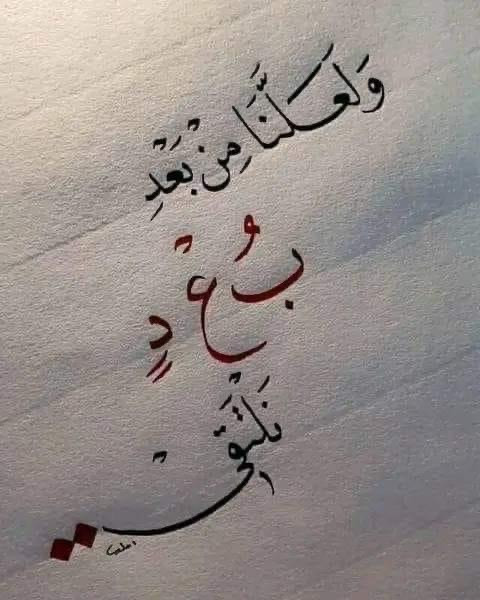 وَلَعَلَّنَا مِنْ بَعْدِ
بُ عْ دٍ
نَلْتَقِي